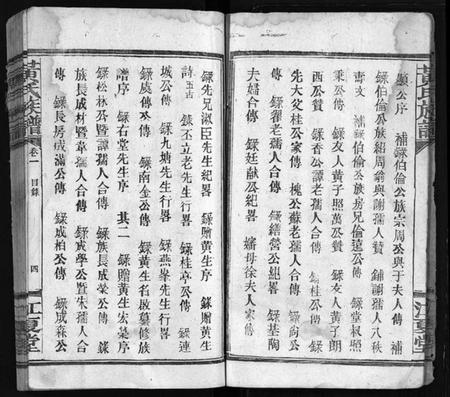 黃氏族譜
願公序 補錄伯倫公族宗周公與于夫人傳 補
錄伯倫公族紹周翁與謝孺人贊 錄謝孺人八秩
壽文 補錄伯倫公族房兄倫遠公傳 錄堂叔照
秉公傳 錄友人黃子照萬公贊 錄友人黃子朗
西公贊 錄香公譚老孺人合傳 錄桂公傳
先大父桂公家傳 槐公蘇老孺人合傳 錄公
傳 錄翟老孺人合傳 錄繕營公紀畧 錄基陶
夫婦合傳 錄廷獻公紀畧 嬸母徐夫人家傳
江夏堂
黃氏族譜
卷一 目錄
四
江夏堂
錄先兄淑臣先生紀畧 錄贈黃生序 錄贈黃生
詩五古 錄丕立老先生行畧 錄桂亭公傳 錄連
城公傳 錄九塘先生行畧 錄燕峯先生行畧
錄處傳公傳 錄南金公傳 錄黃生名啟纂修族
譜序 錄右堂先生序 其二 錄贈黃生宏業序
錄松林公暨譚孺人合傳 錄族長成棠公傳 錄
族長成材暨韋孺人合傳 錄成學公暨朱孺人合
傳 錄長房成滿公傳 錄成柏公傳 錄成森公